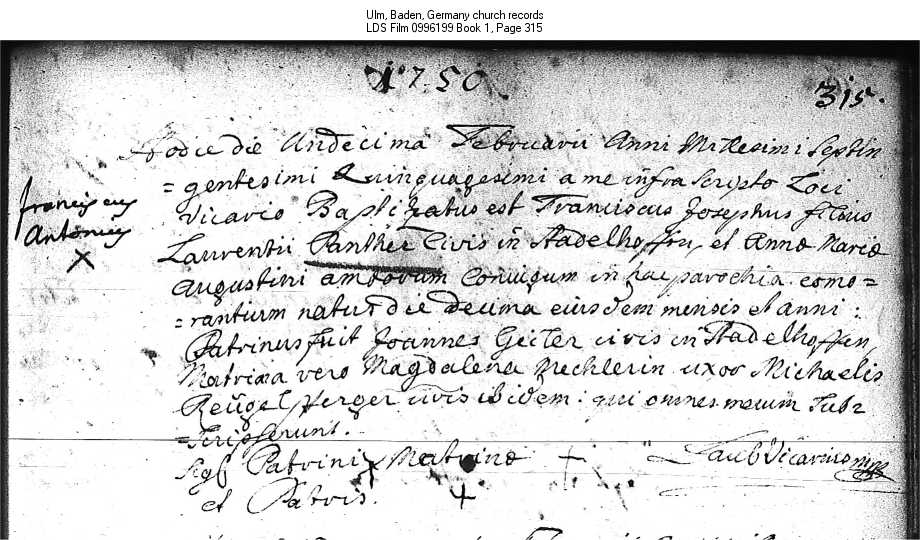 Ulm, Baden, Germany church records
LDS Film 0996199 Book 1, Page 315
1750.
315.
Hodie die Undecima Februarii Anni Millesimi Septin
= gentesimi Quinquagesimi a me infra Scripto Loci
Vicario Baptizatus est Franciscus Josephus filius
Franciscus
Antonius
X
Laurentii Panther Civis in Stadelhoffen, et Annæ Mariæ
Augustini amborum Coniugum in hac parochia como=
=rantium natus die decima eiusdem mensis et anni:
Patrinus fuit Joannes Geiler civis in Stadelhoffen,
Matrina vero Magdalena uxor Michaelis
civis ibidem: qui omnes mecum Sub=
=scripserunt.
Sig Patrini X Matrinæ + Laub Vicarius mpp
et Patris. +